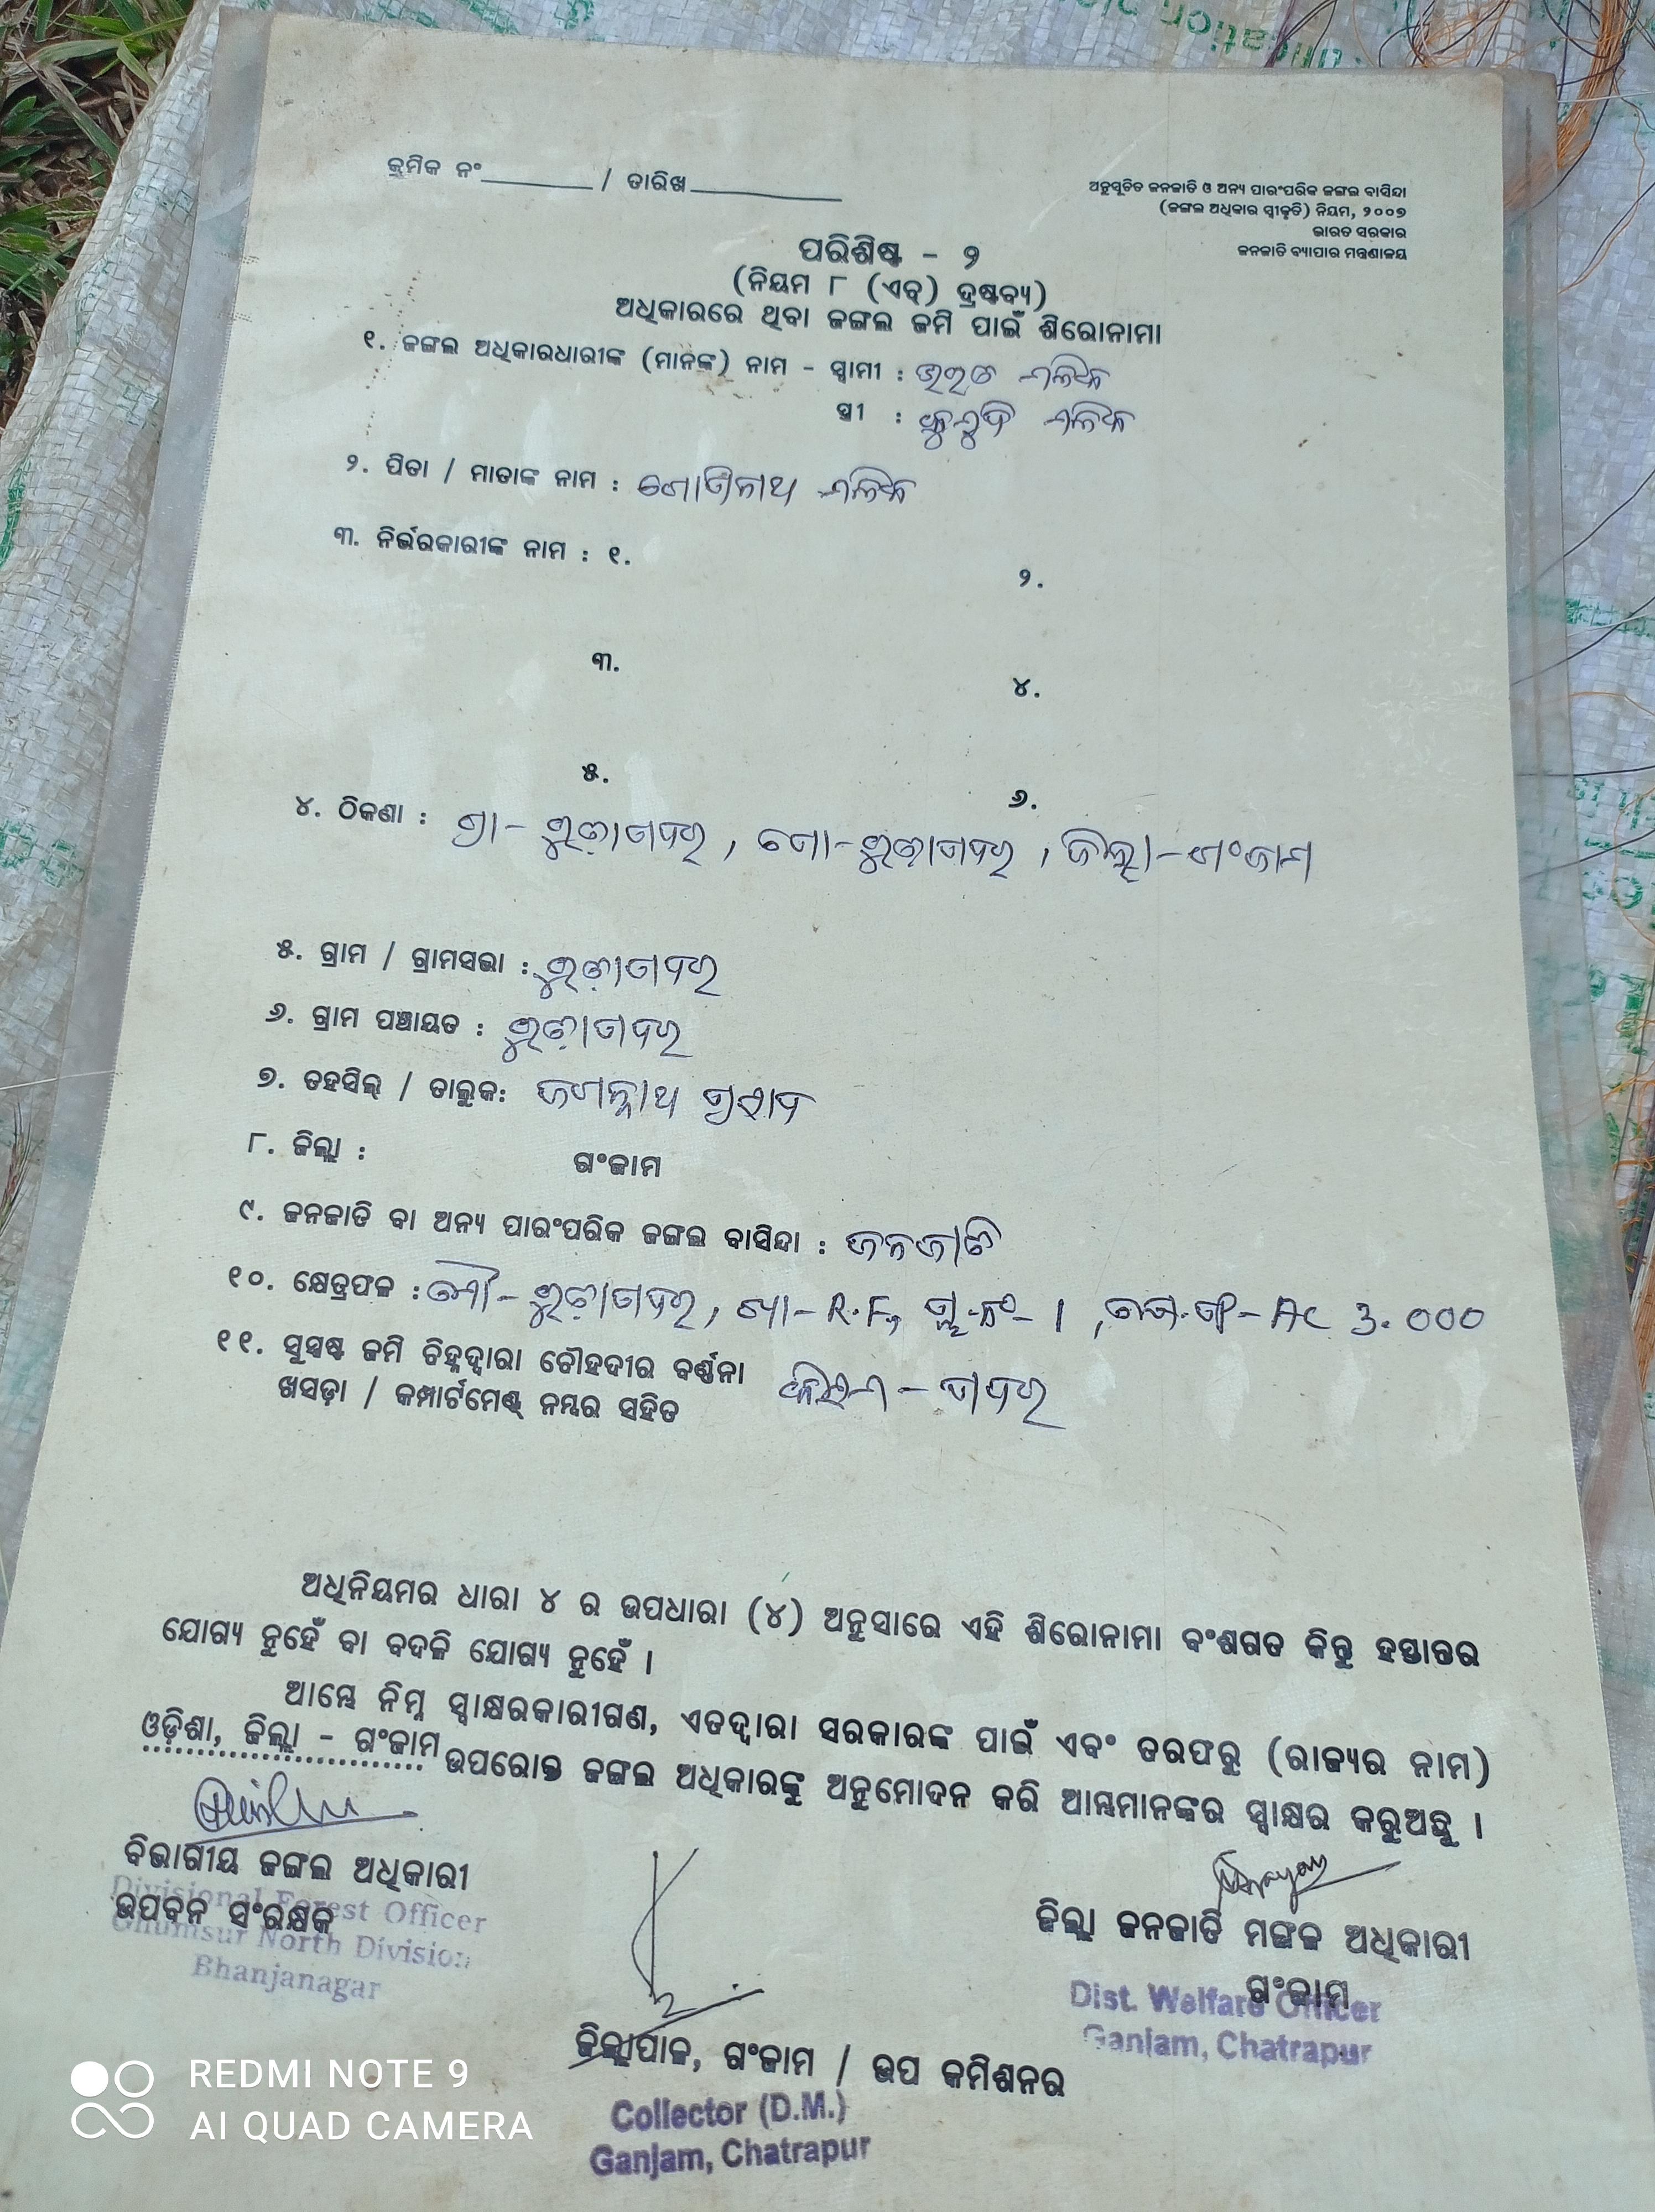 କ୍ରମିକ ନଂ________ / ତାରିଖ___________
ଅନୁସୂଚିତ ଜନଜାତି ଓ ଅନ୍ୟ ପାରଂପରିକ ଜଙ୍ଗଲ ବାସିନ୍ଦା
(ଜଙ୍ଗଲ ଅଧିକାର ସ୍ୱୀକୃତି) ନିୟମ, ୨୦୦୭
ଭାରତ ସରକାର
ଜନଜାତି ବ୍ୟାପାର ମନ୍ତ୍ରଣାଳୟ
ପରିଶିଷ୍ଟ - ୨
(ନିୟମ ୮ (ଏବ୍) ଦ୍ରଷ୍ଟବ୍ୟ)
ଅଧିକାରରେ ଥିବା ଜଙ୍ଗଲ ଜମି ପାଇଁ ଶିରୋନାମା
୧. ଜଙ୍ଗଲ ଅଧିକାରଧାରୀଙ୍କ (ମାନଙ୍କ) ନାମ - ସ୍ୱାମୀ : ଭରତ
ସ୍ତ୍ରୀ :
୨. ପିତା / ମାତାଙ୍କ ନାମ : ଗୋପିନାଥ
୩. ନିର୍ଭରକାରୀଙ୍କ ନାମ : ୧.
୨.
୩.
୪.
୫.
୬.
୪. ଠିକଣା : ଗ୍ରା- , ପୋ- , ଜିଲ୍ଲା-ଗଂଜାମ
୫. ଗ୍ରାମ / ଗ୍ରାମସଭା :
୬. ଗ୍ରାମ ପଞ୍ଚାୟତ :
୭. ତହସିଲ୍ / ତାଲୁକ: ଜଗନ୍ନାଥ ପ୍ରସାଦ
୮. ଜିଲ୍ଲା : ଗଂଜାମ
୯. ଜନଜାତି ବା ଅନ୍ୟ ପାରଂପରିକ ଜଙ୍ଗଲ ବାସିନ୍ଦା : ଜନଜାତି
୧୦. କ୍ଷେତ୍ରଫଳ : ମୌ- , ଖା- R.F, ପ୍ଲ.ନଂ- 1 , Ac 3.000
୧୧. ସୁସ୍ପଷ୍ଟ ଜମି ଚିହ୍ନଦ୍ୱାରା ଚୌହଦୀର ବର୍ଣ୍ଣନା
ଖସଡ଼ା / କମ୍ପାର୍ଟମେଣ୍ଟ ନମ୍ବର ସହିତ
ଅଧିନିୟମର ଧାରା ୪ ର ଉପଧାରା (୪) ଅନୁସାରେ ଏହି ଶିରୋନାମା ବଂଶଗତ କିନ୍ତୁ ହସ୍ତାନ୍ତର
ଯୋଗ୍ୟ ନୁହେଁ ବା ବଦଳି ଯୋଗ୍ୟ ନୁହେଁ ।
ଆମ୍ଭେ ନିମ୍ନ ସ୍ୱାକ୍ଷରକାରୀଗଣ, ଏତଦ୍ୱାରା ସରକାରଙ୍କ ପାଇଁ ଏବଂ ତରଫରୁ (ରାଜ୍ୟର ନାମ)
ଓଡ଼ିଶା, ଜିଲ୍ଲା - ଗଂଜାମ ଉପରୋକ୍ତ ଜଙ୍ଗଲ ଅଧିକାରଙ୍କୁ ଅନୁମୋଦନ କରି ଆମ୍ଭମାନଙ୍କର ସ୍ୱାକ୍ଷର କରୁଅଛୁ ।
ବିଭାଗୀୟ ଜଙ୍ଗଲ ଅଧିକାରୀ
ଉପବନ ସଂରକ୍ଷକ
Divisional Forest Officer
Ghumsur North Division
Bhanjanagar
ଜିଲ୍ଲା ଜନଜାତି ମଙ୍ଗଳ ଅଧିକାରୀ
ଗଂଜାମ
Dist. Welfare Officer
Ganjam, Chatrapur
ଜିଲ୍ଲାପାଳ, ଗଂଜାମ / ଉପ କମିଶନର
Collector (D.M.)
Ganjam, Chatrapur
REDMI NOTE 9
AI QUAD CAMERA